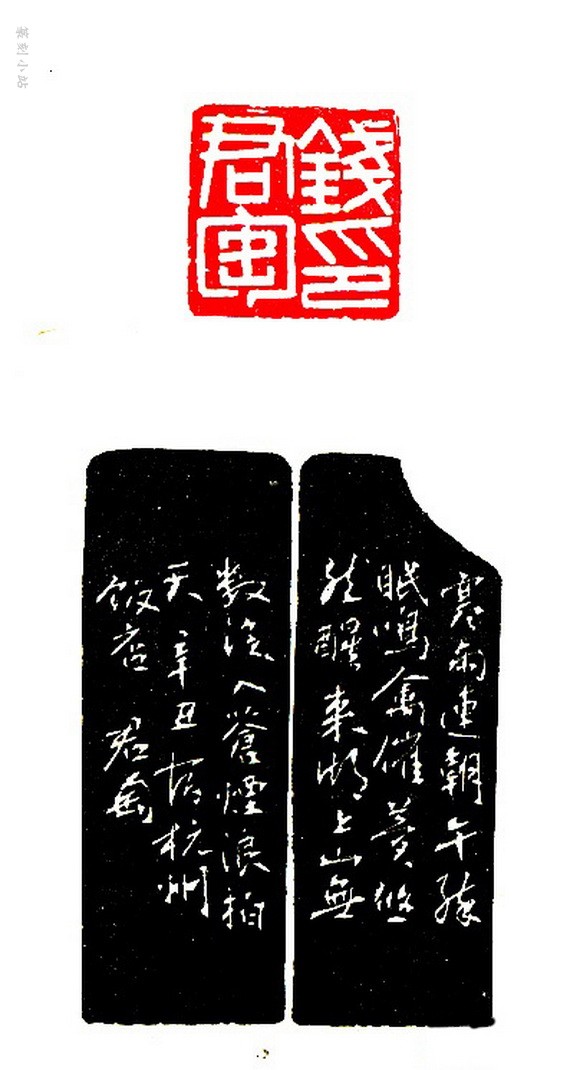 錢印
君匋
寒雨連朝午
眠鳴禽催夢悠
然醒來湖上山無
數淡入蒼煙浪拍
天辛丑杭州
飯店 君匋
篆刻小站